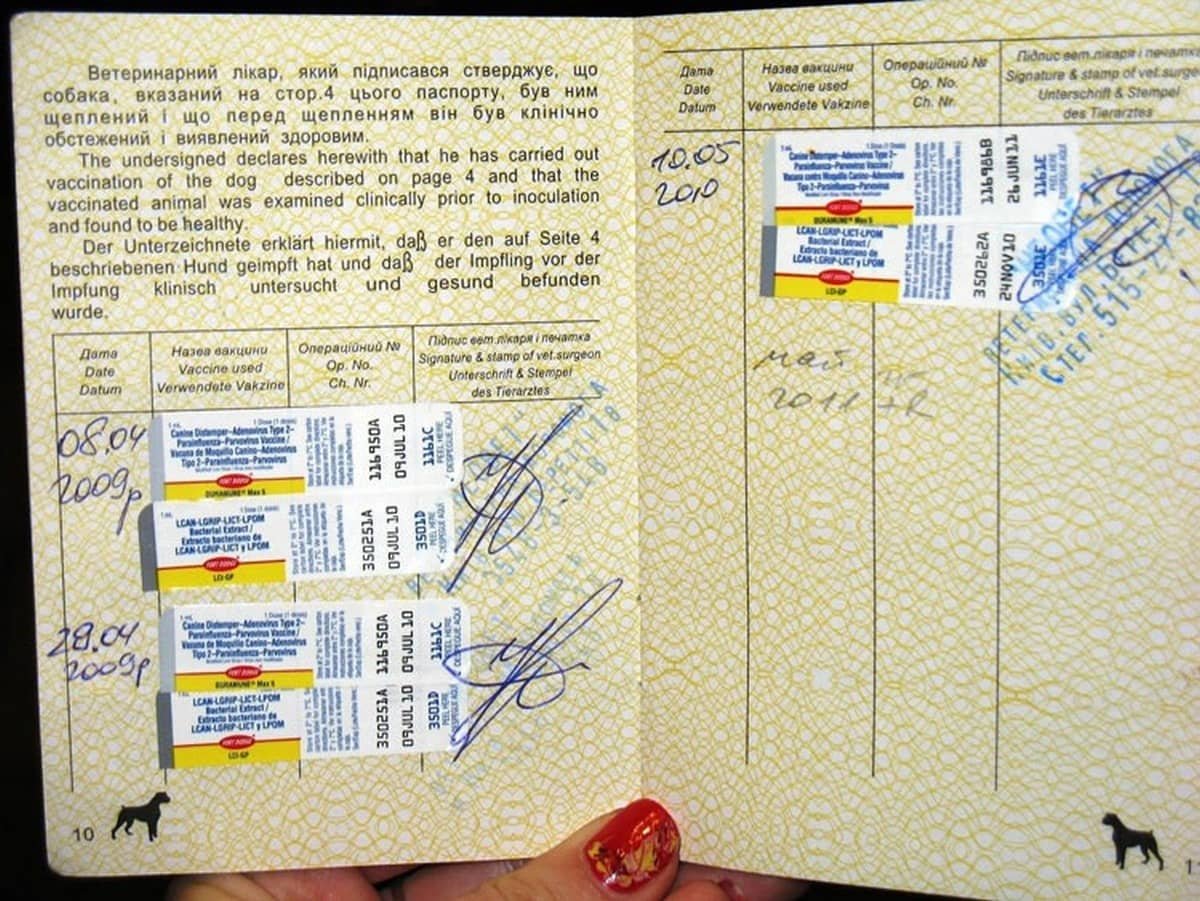 Ветеринарний лікар, який підписався стверджує, що
собака, вказаний на стор.4 цього паспорту, був ним
щеплений і що перед щепленням він був клінічно
обстежений і виявлений здоровим.
The undersigned declares herewith that he has carried out
vaccination of the dog described on page 4 and that the
vaccinated animal was examined clinically prior to inoculation
and found to be healthy.
Der Unterzeichnete erklärt hiermit, daß er den auf Seite 4
beschriebenen Hund geimpft hat und daß der Impfling vor der
Impfung klinisch untersucht und gesund befunden
wurde.
Дата
Date
Datum
Назва вакцини
Vaccine used
Verwendete Vakzine
Операційний №
Op. No.
Ch. Nr.
Підпис вет.лікаря і печатка
Signature & stamp of vet.surgeon
Unterschrift & Stempel
des Tierarztes
08.04
2009р
1 mL 1 Dose (1 dosis)
Canine Distemper-Adenovirus Type 2-
Parainfluenza-Parvovirus Vaccine /
Vacuna de Moquillo Canino-Adenovirus
Tipo 2-Parainfluenza-Parvovirus
FORT DODGE
DURAMUNE® Max 5
116950A
09JUL 10
1161C
PEEL HERE
DESPEGUE AQUÍ
1 mL 1 Dose (1 dosis)
LCAN-LGRIP-LICT-LPOM
Bacterial Extract /
Extracto bacteriano de
LCAN-LGRIP-LICT y LPOM
FORT DODGE
LCI-GP
350251A
09JUL 10
3501D
PEEL HERE
DESPEGUE AQUÍ
28.04
2009р
1 mL 1 Dose (1 dosis)
Canine Distemper-Adenovirus Type 2-
Parainfluenza-Parvovirus Vaccine /
Vacuna de Moquillo Canino-Adenovirus
Tipo 2-Parainfluenza-Parvovirus
FORT DODGE
DURAMUNE® Max 5
116950A
09JUL 10
1161C
PEEL HERE
DESPEGUE AQUÍ
LCAN-LGRIP-LICT-LPOM
Bacterial Extract /
Extracto bacteriano de
LCAN-LGRIP-LICT y LPOM
FORT DODGE
LCI-GP
350251A
09JUL 10
3501D
PEEL HERE
DESPEGUE AQUÍ
10
Дата
Date
Datum
Назва вакцини
Vaccine used
Verwendete Vakzine
Операційний №
Op. No.
Ch. Nr.
Підпис вет.лікаря і печатка
Signature & stamp of vet.surgeon
Unterschrift & Stempel
des Tierarztes
10.05
2010
1 mL 1 Dose (1 dosis)
Canine Distemper-Adenovirus Type 2-
Parainfluenza-Parvovirus Vaccine /
Vacuna contra Moquillo Canino-Adenovirus
Tipo 2-Parainfluenza-Parvovirus
FORT DODGE
DURAMUNE® Max 5
116966B
26JUN 11
1161E
PEEL HERE
DESPEGUE AQUÍ
LCAN-LGRIP-LICT-LPOM
Bacterial Extract /
Extracto bacteriano de
LCAN-LGRIP-LICT y LPOM
FORT DODGE
LCI-GP
350262A
24NOV 10
3501E
май
2011